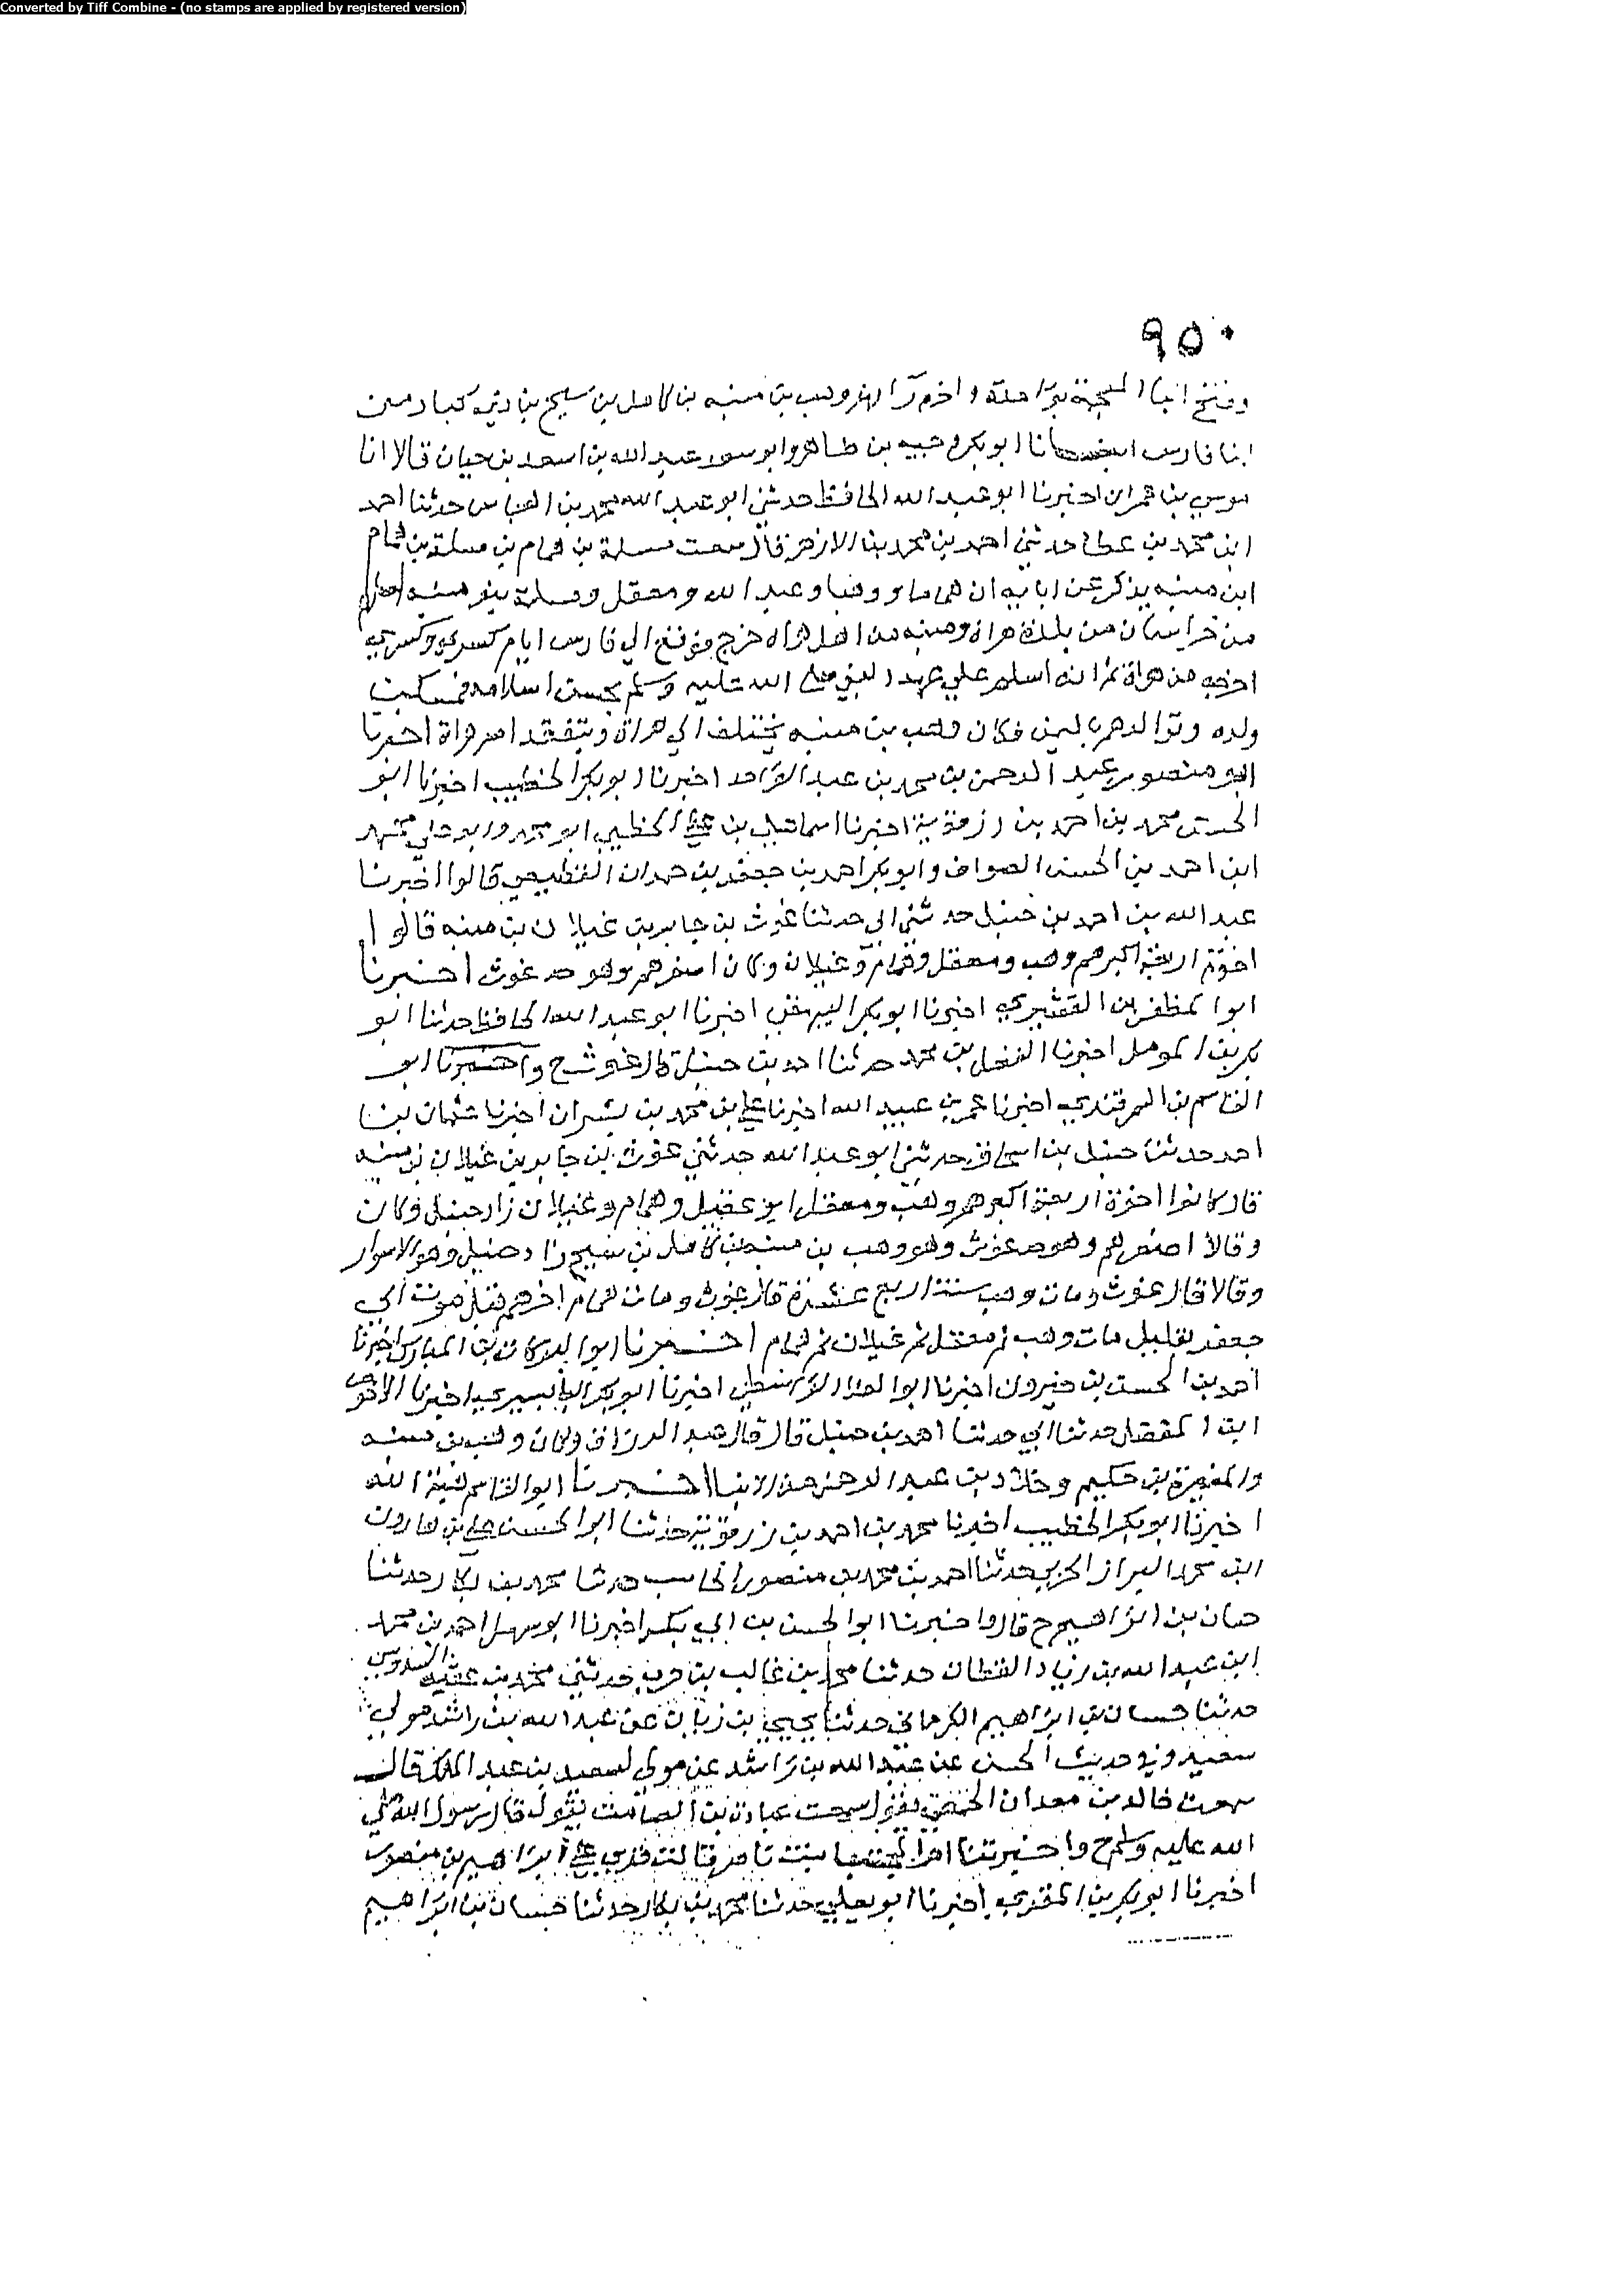 Converted by Tiff Combine - (no stamps are applied by registered version)
٩٥٠
وفتح الباء المعجمة بواحدة واخره راء فهو وهب بن منبه بن كامل بن سيج بن ذي كبار من
ابنا فارس انا ابو بكر وجيه بن طاهر وابو سعد عبد الله بن اسعد بن حيان قالا انا
موسى بن عمران اخبرنا ابو عبد الله الحافظ حدثني ابو عبد الله محمد بن العباس حدثنا احمد
ابن محمد بن عطا حدثني احمد بن محمد بن الازهر قال سمعت مسلمة بن همام بن مسلمة بن همام
ابن منبه يذكر عن ابايه ان هماما ووهبا وعبد الله ومعقل ومسلمة بنو منبه اصلهم
من خراسان من بلدة هراة ومنبه من اهل هراة خرج فوقع الى فارس ايام كسرى وكسرى
اخرجه من هراة ثم انه اسلم على عهد النبي صلى الله عليه وسلم فحسن اسلامه فمسكن
ولده وتوالدهم باليمن فكان وهب بن منبه يختلف الى هراة ويتفقد امر هراة اخبرنا
ابو منصور عبد الرحمن بن محمد بن عبد الواحد اخبرنا ابو بكر الخطيب اخبرنا ابو
الحسن محمد بن احمد بن رزقويه اخبرنا اسماعيل بن علي الخطبي ابو محمد وابو علي محمد
ابن احمد بن الحسن الصواف وابو بكر احمد بن جعفر بن حمدان القطيعي قالوا اخبرنا
عبد الله بن احمد بن حنبل حدثني ابي حدثنا غوث بن جابر بن غيلان بن منبه قالوا
اخوة اربعة اكبرهم وهب ومعقل وهمام وغيلان وكان اصغرهم وهو جد غوث اخبرنا
ابو المظفر بن القشيري اخبرنا ابو بكر البيهقي اخبرنا ابو عبد الله الحافظ حدثنا ابو
بكر بن المومل اخبرنا الفضل بن محمد حدثنا احمد بن حنبل قال غوث ح واخبرنا ابو
القاسم بن السمرقندي اخبرنا عمر بن عبيد الله اخبرنا علي بن محمد بن بشران اخبرنا عثمان بن
احمد حدثنا حنبل بن اسحاق حدثني ابو عبد الله حدثني غوث بن جابر بن غيلان بن منبه
قال كانوا اخوة اربعة اكبرهم وهب ومعقل ابو عقيل وهمام وغيلان زاد حنبل وكان
وقالا اصغرهم وهو جد غوث وهو وهب بن منبه بن كامل بن سيج زاد حنبل وهو الاسوار
وقالا قال غوث ومات وهب سنة اربع عشرة قال غوث ومات همام اخرهم قبل موت ابي
جعفر بقليل مات وهب ثم معقل ثم غيلان ثم همام اخبرنا ابو البركات بن المبارك اخبرنا
احمد بن الحسن بن خيرون اخبرنا ابو العلا الواسطي اخبرنا ابو بكر البابسيري اخبرنا الاحوص
ابن المفضل حدثنا ابي حدثنا احمد بن حنبل قال قال عبد الرزاق وكان وهب بن منبه
والمغيرة بن حكيم وخلاد بن عبد الرحمن من الابنا اخبرنا ابو القاسم هبة الله
اخبرنا ابو بكر الخطيب اخبرنا محمد بن احمد بن رزقويه حدثنا ابو الحسن علي بن هارون
ابن محمد البزاز الحربي حدثنا احمد بن محمد بن منصور الحاسب حدثنا محمد بن بكار حدثنا
حسان بن ابراهيم ح قال واخبرنا ابو الحسن بن ابي بكر اخبرنا ابو سهل احمد بن محمد
ابن عبد الله بن زياد القطان حدثنا محمد بن غالب بن حرب حدثني محمد بن عقبة السدوسي
حدثنا حسان بن ابراهيم الكرماني حدثنا يحيى بن زبان عن عبد الله بن راشد مولى
سعيد وفي حديث الحسن عن عبد الله بن راشد عن مولى لسعيد بن عبد الملك قال
سمعت خالد بن معدان يقول سمعت عبادة بن الصامت يقول قال رسول الله صلى
الله عليه وسلم ح واخبرتنا ام المجتبى بنت ناصر قالت قري على ابراهيم بن منصور
اخبرنا ابو بكر بن المقري اخبرنا ابو يعلى حدثنا محمد بن بكار حدثنا حسان بن ابراهيم